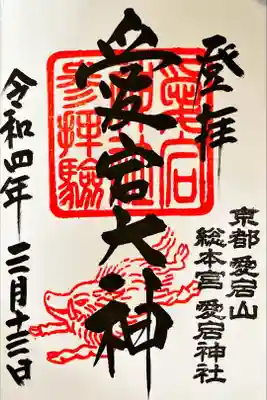 登拝
京都 愛宕山
総本宮 愛宕神社
愛宕大神
愛宕
神社
参拝驗
令和四年 三月十三日